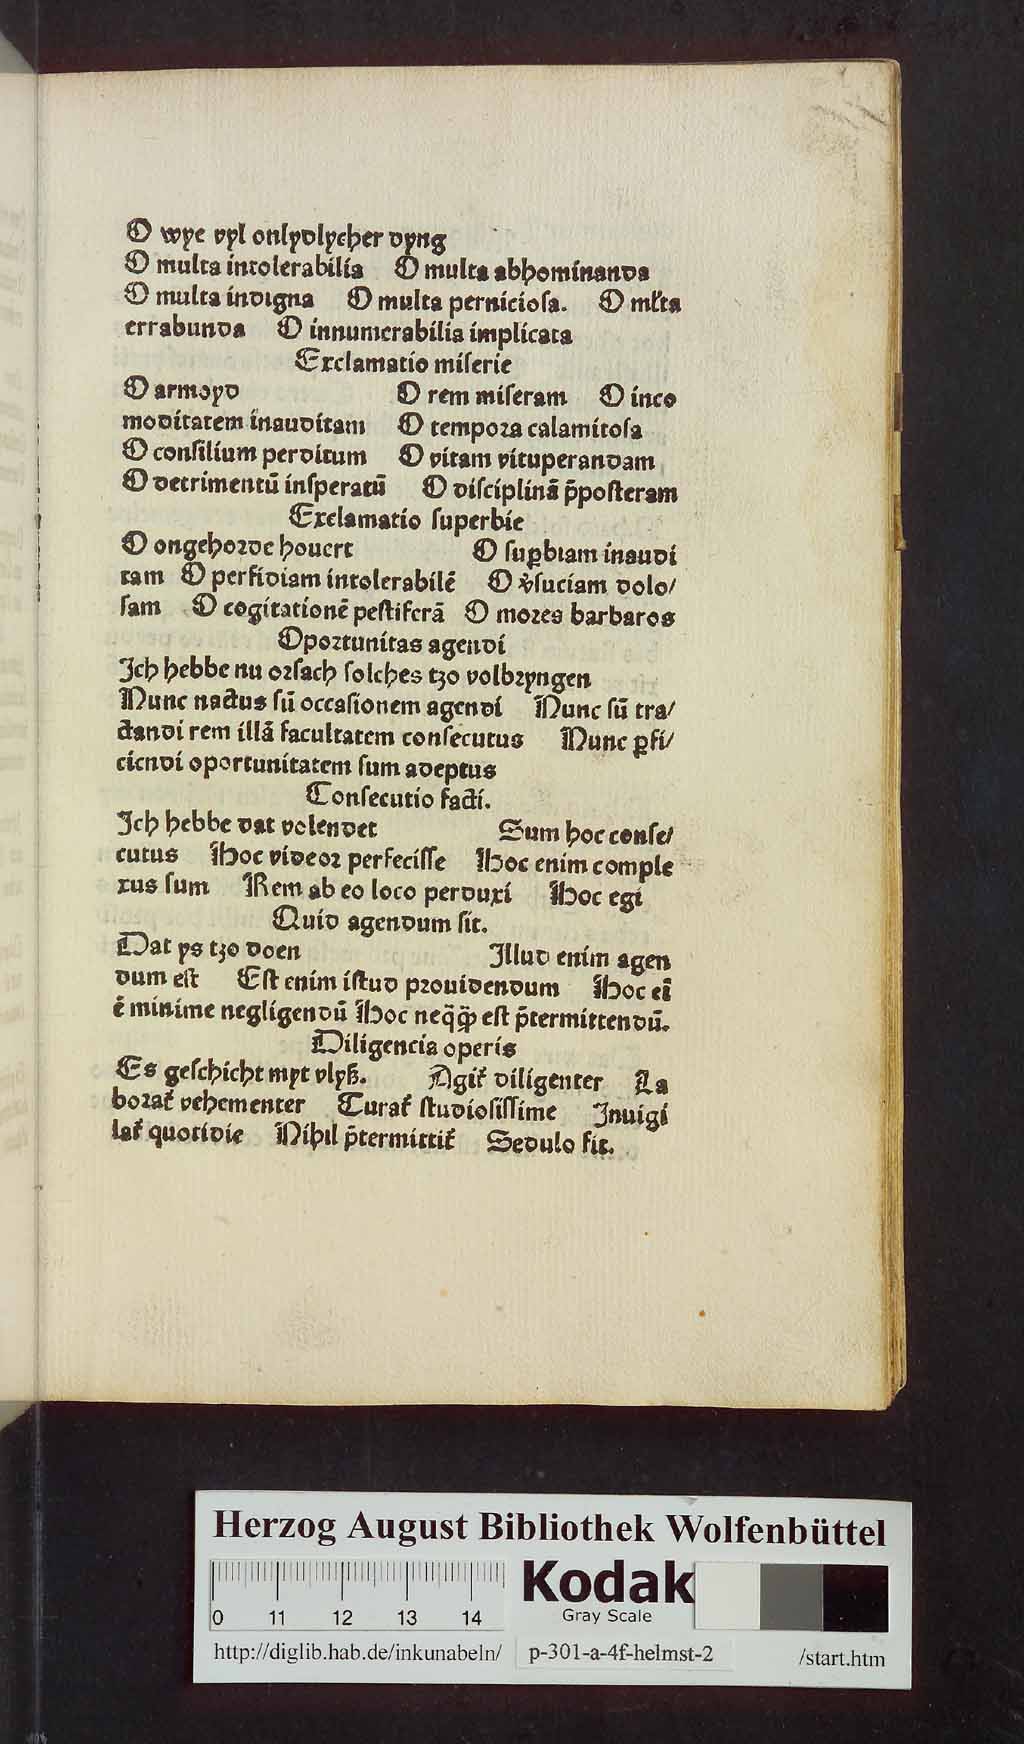 O wye vyl onlydlycher dyng
O multa intolerabilia O multa abhominanda
O multa indigna O multa perniciosa. O mlta
errabunda O innumerabilia implicata
Exclamatio miserie
O armoyd O rem miseram O inco
moditatem inauditam O tempora calamitosa
O consilium perditum O vitam vituperandam
O detrimentū insperatū O disciplinā p̄posteram
Exclamatio superbie
O ongehorde houert O suꝑbiam inaudi
tam O perfidiam intolerabilē O v̾suciam dolo/
sam O cogitationē pestiferā O mores barbaros
Oportunitas agendi
Ich hebbe nu orsach solches tzo volbryngen
Nunc nactus sū occasionem agendi Nunc sū tra/
ctandi rem illā facultatem consecutus Nunc ꝑfi/
ciendi oportunitatem sum adeptus
Consecutio facti.
Ich hebbe dat volendet Sum hoc conse/
cutus Hoc videor perfecisse Hoc enim comple
xus sum Rem ab eo loco perduxi Hoc egi
Quid agendum sit.
Dat ys tzo doen Illud enim agen
dum est Est enim istud prouidendum Hoc eī
ē minime negligendū Hoc neq̄ꝙ̄ est p̄termittendū.
Diligencia operis
Es geschicht myt vlyß. Agit᷑ diligenter La
borat᷑ vehementer Curat᷑ studiosissime Inuigi
lat᷑ quotidie Nihil p̄termittit᷑ Sedulo fit.
Herzog August Bibliothek Wolfenbüttel
Kodak
Gray Scale
0 11 12 13 14
http://diglib.hab.de/inkunabeln/ p-301-a-4f-helmst-2 /start.htm